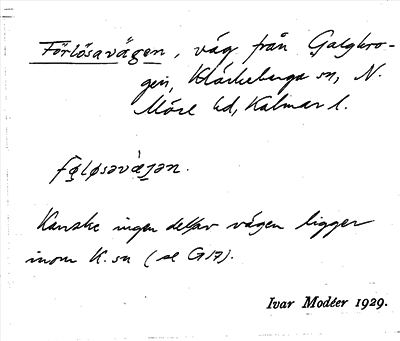 Förlösavägen, väg från Galgkro-
gen, Kläckeberga sn, N.
Möre hd, Kalmar l.
fø̣løsəvä̀jən.
Kanske ingen del av vägen ligger
inom K. sn (se G17).
Ivar Modéer 1929.